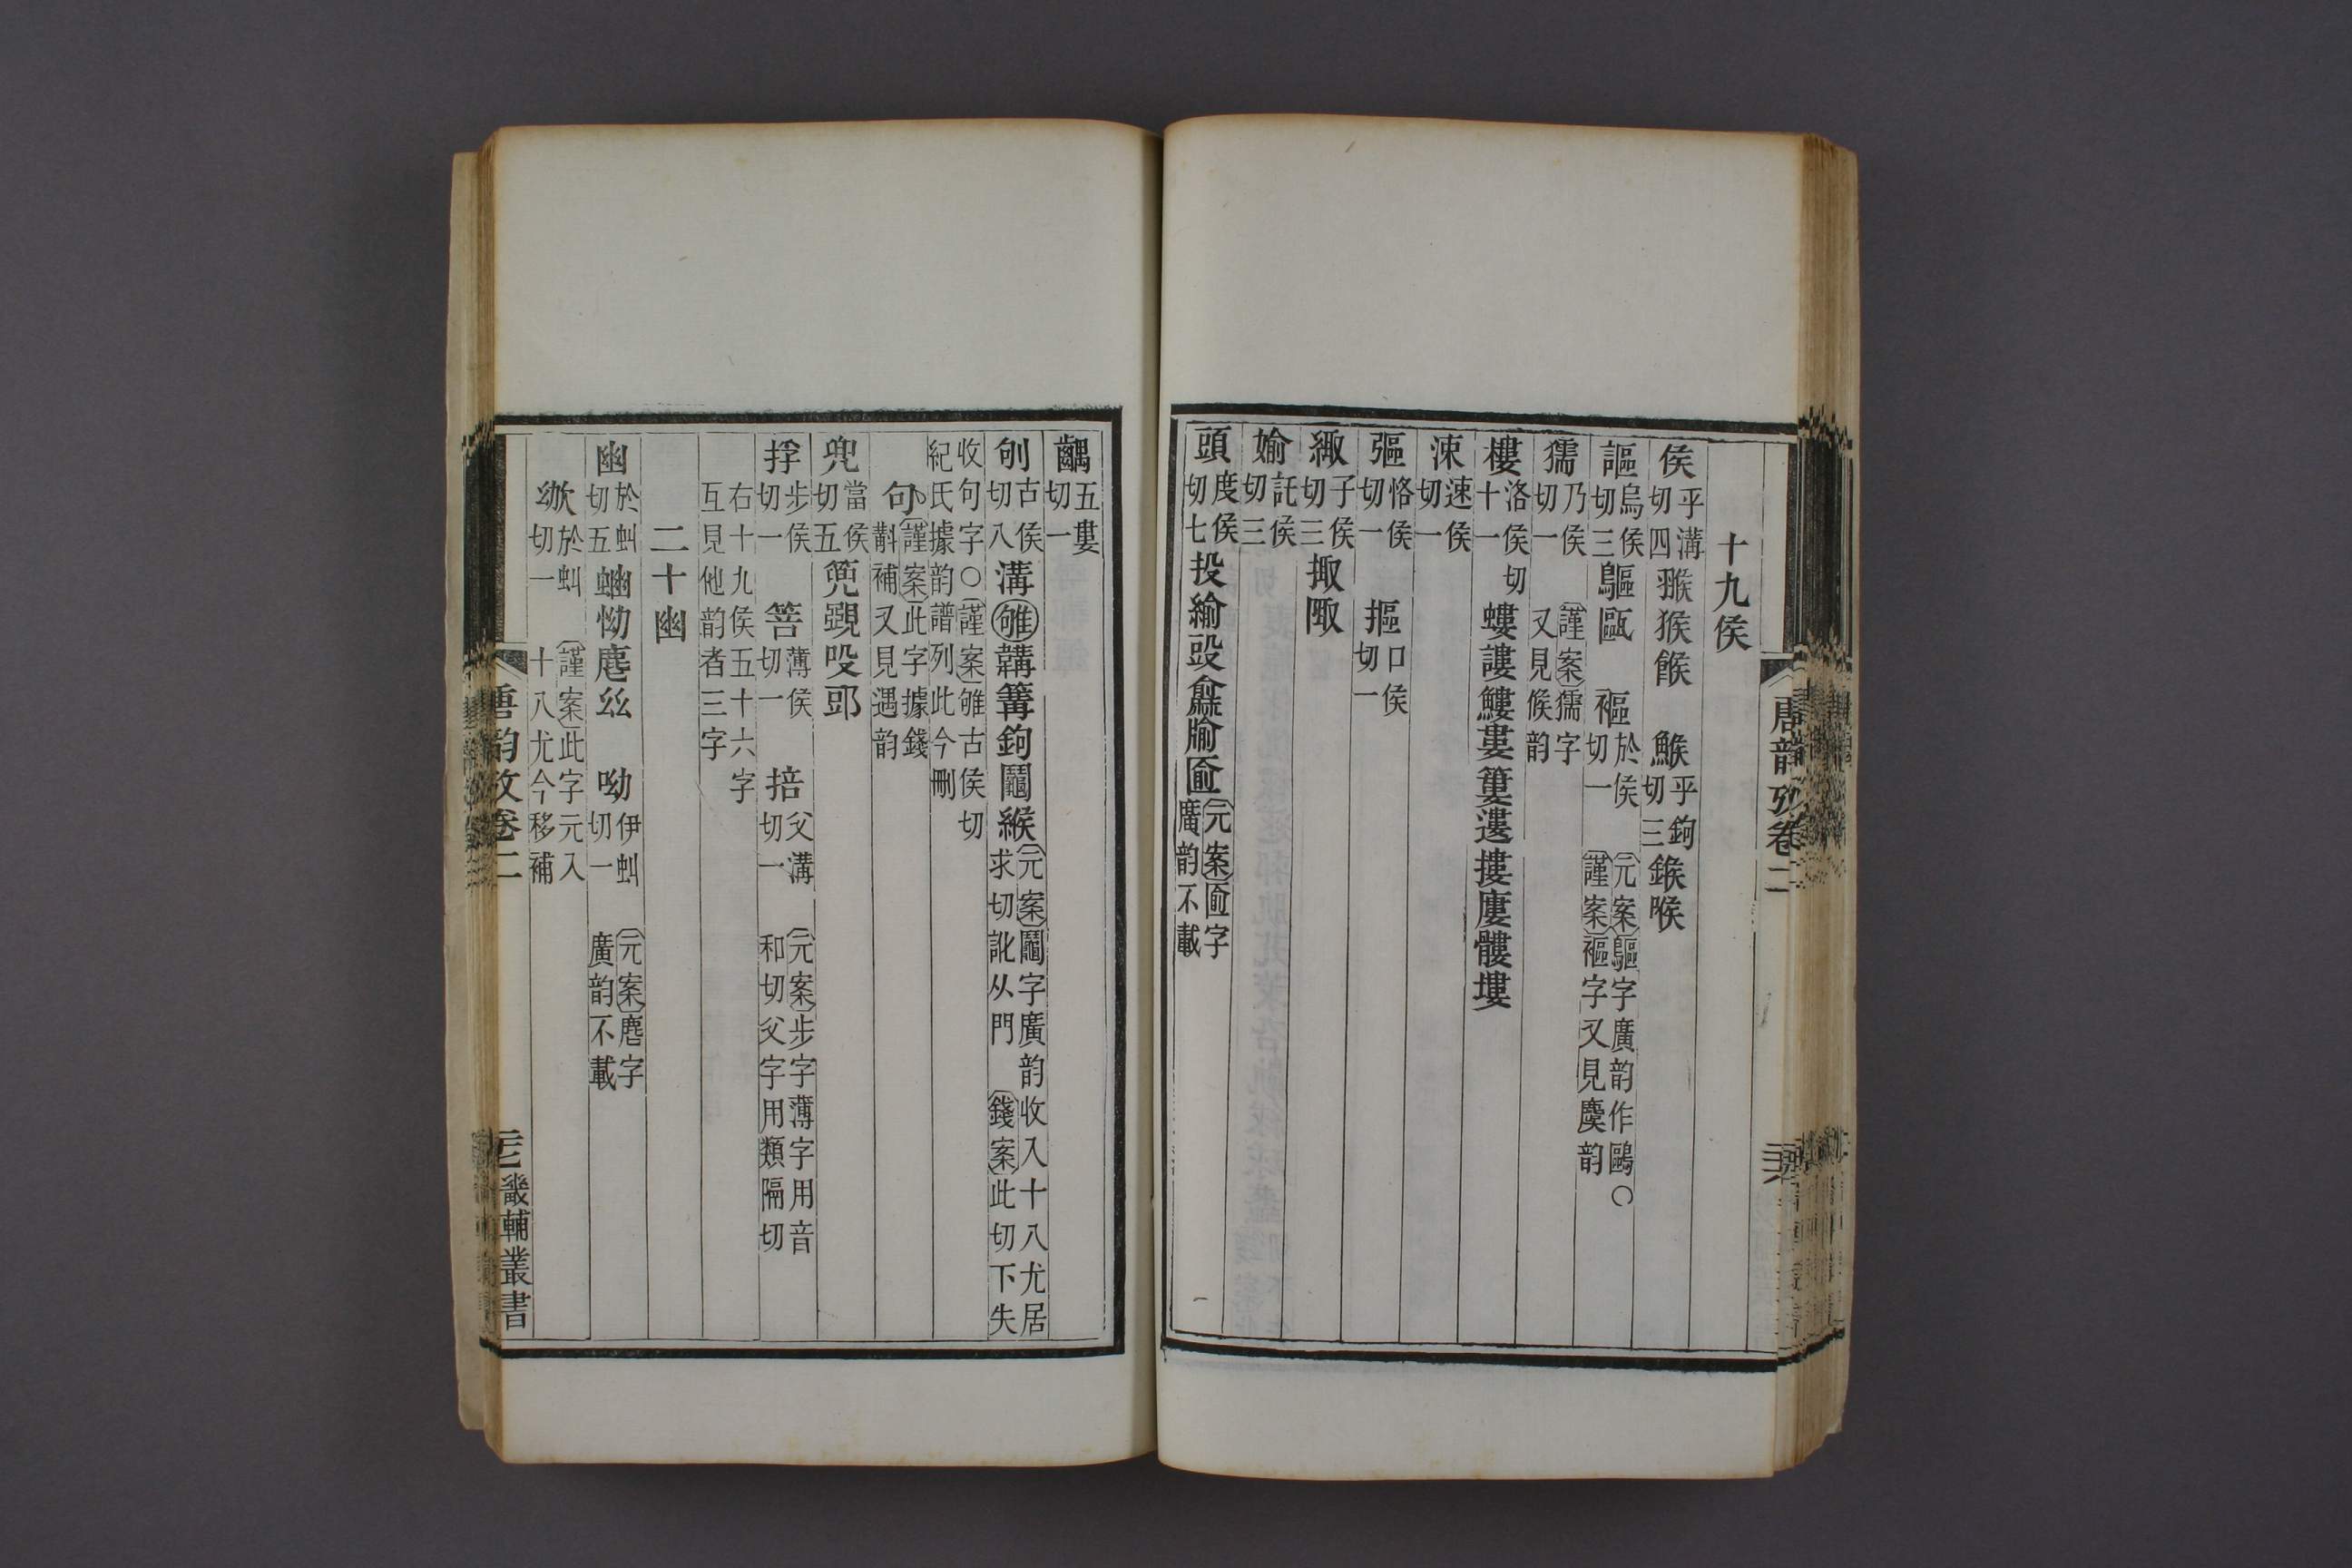 唐韵攷卷二
十九侯
侯乎溝切四猴猴餱 鯸乎鉤切三鍭喉
謳烏侯切三䳼甌 褔於侯切一 元案䳼字廣韵作鷗○謹案褔字又見虞韵
獳乃侯切一 謹案獳字又見候韵
樓洛侯切十一 螻謱鰻婁簍遱摟廔髏塿
涑速侯切一
彄恪侯切一 摳口侯切一
緅子侯切三掫陬
媮託侯切三
頭度侯切七投緰㪗龥牏匬元案匬字廣韵不載
齵五婁切一
刏古侯切八溝雊韝篝鉤鬮緱元案鬮字廣韵收入十八尤居求切訛从門 錢案此切下失
收句字○謹案雊古侯切紀氏據韵譜列此今刪
句謹案此字據錢斠補又見遇韵
兜當侯切五篼覴吺郖
捊步侯切一 箁薄侯切一 掊父溝切一 元案步字薄字用音和切父字用類隔切
右十九侯五十六字互見他韵者三字
二十幽
幽於虯切五蚴怮麀丝 呦伊虯切一 元案麀字廣韵不載
㰶於虯切一 謹案此字元入十八尤今移補
唐韵攷卷二
畿輔叢書